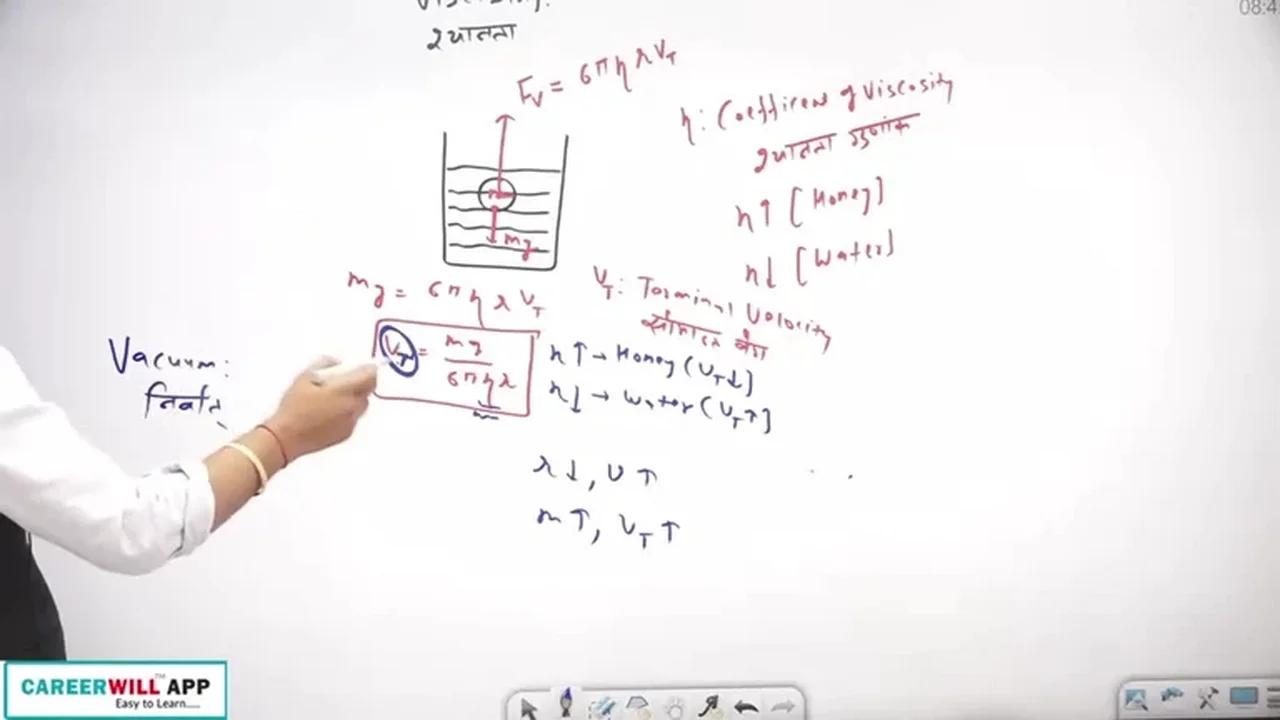 08:4
Viscosity:
श्यानता
Fv = 6πηrVT
η: Coefficien of Viscosity
श्यानता गुणांक
η↑ [Honey]
η↓ [Water]
mg
mg = 6πηrVT
VT: Terminal Velocity
सीमान्त वेग
VT = mg / 6πηr
η↑→ Honey (VT↓]
η↓ → Water (VT↑]
Vacuum:
निर्वात
r↓, V↑
m↑, VT↑
CAREERWILL™ APP
Easy to Learn.....